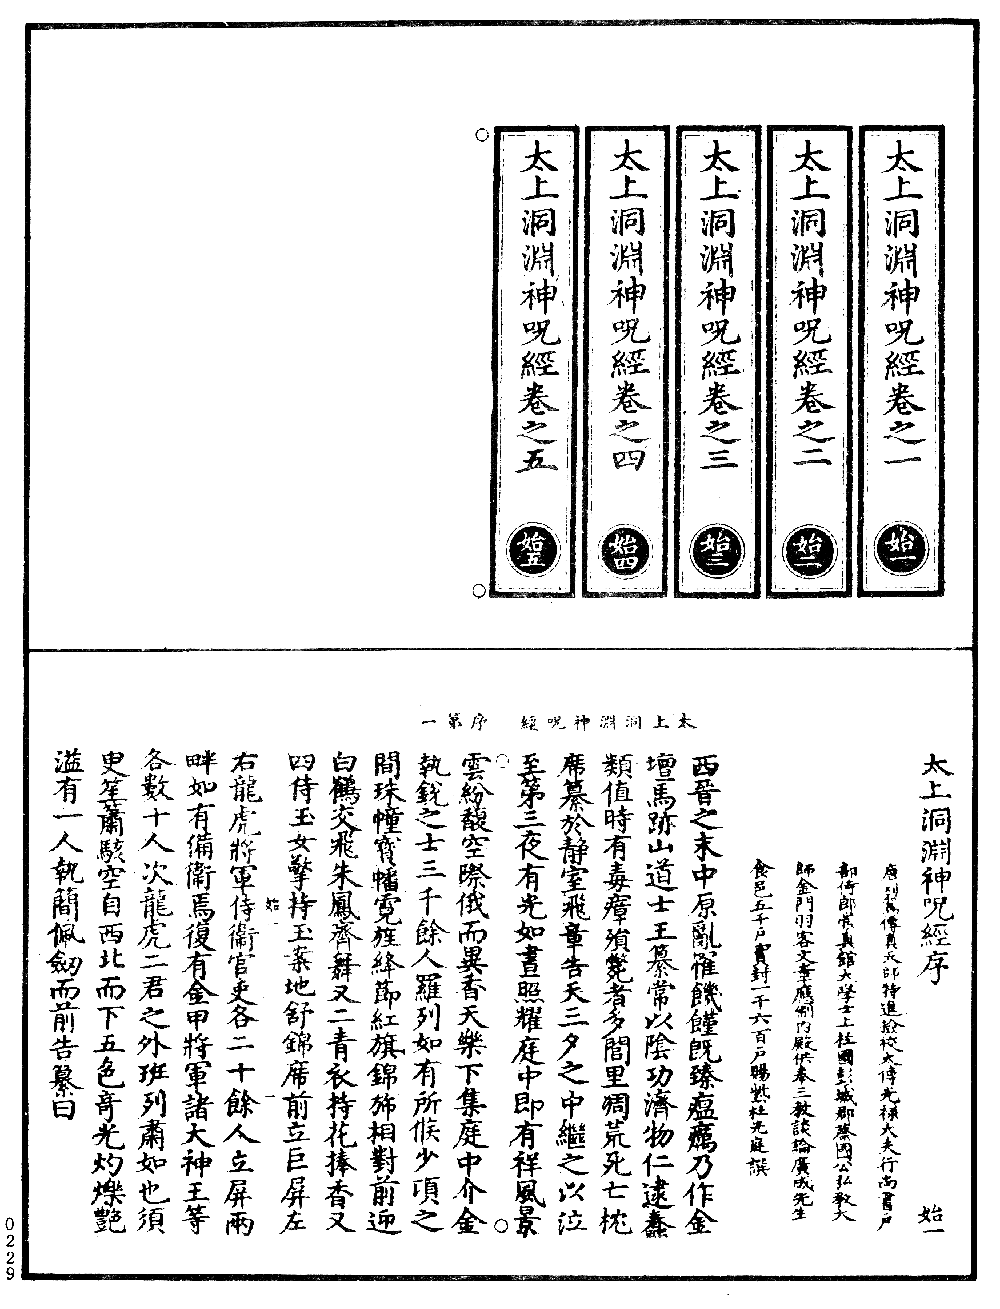 太上洞淵神呪經卷之一
始一
太上洞淵神呪經卷之二
始二
太上洞淵神呪經卷之三
始三
太上洞淵神呪經卷之四
始四
太上洞淵神呪經卷之五
始五
太上洞淵神呪經序
始一
傳真天師特進檢校太傅光祿大夫行尚書戶
部侍郎崇真館大學士上柱國彭城郡蔡國公弘教大
師金門羽客文章應制內殿供奉三教談論廣成先生
食邑五千戶實封一千六百戶賜紫杜光庭撰
太上洞淵神呪經 序第一
西晉之末中原亂罹饑饉既臻瘟癘乃作金
壇馬跡山道士王纂常以陰功濟物仁逮蠢
類值時有毒瘴殞斃者多閭里凋荒死亡枕
席纂於静室飛章告天三夕之中繼之以泣
至第三夜有光如晝照耀庭中即有祥風景
雲紛馥空際俄而異香天樂下集庭中介金
執銳之士三千餘人羅列如有所候少頃之
間珠幢寶幡霓旌絳節紅旗錦斾相對前迎
白鶴交飛朱鳳齊舞又二青衣持花捧香又
四侍玉女擎持玉案地舒錦席前立巨屏左
始一 一
右龍虎將軍侍衞官吏各二十餘人立屏兩
畔如有備衞焉復有金甲將軍諸大神王等
各數十人次龍虎二君之外班列肅如也須
臾笙簫駭空自西北而下五色奇光灼爍艷
溢有一人執簡佩劒而前告纂曰
0229